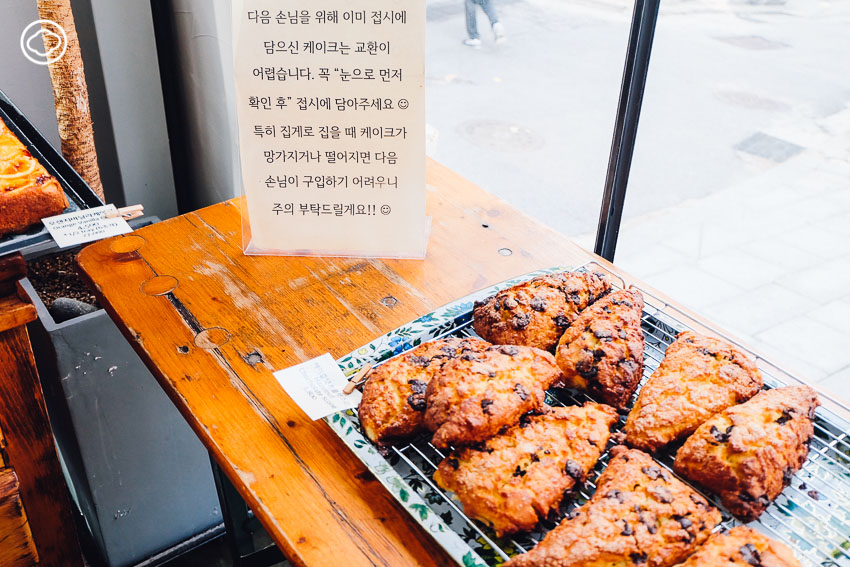 다음 손님을 위해 이미 접시에
담으신 케이크는 교환이
어렵습니다. 꼭 “눈으로 먼저
확인 후” 접시에 담아주세요 ☺
특히 집게로 집을 때 케이크가
망가지거나 떨어지면 다음
손님이 구입하기 어려우니
주의 부탁드릴게요!! ☺
4,500